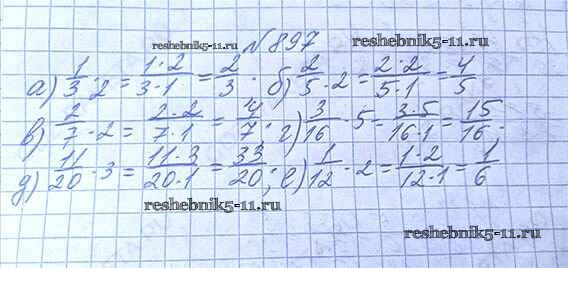 reshebnik5-11.ru № 897 reshebnik5-11.ru
а) 1/3 · 2 = 1·2/3·1 = 2/3 · б) 2/5 · 2 = 2·2/5·1 = 4/5
в) 2/7 · 2 = 2·2/7·1 = 4/7; г) 3/16 · 5 = 3·5/16·1 = 15/16.
д) 11/20 · 3 = 11·3/20·1 = 33/20; е) 1/12 · 2 = 1·2/12·1 = 1/6
reshebnik5-11.ru
reshebnik5-11.ru